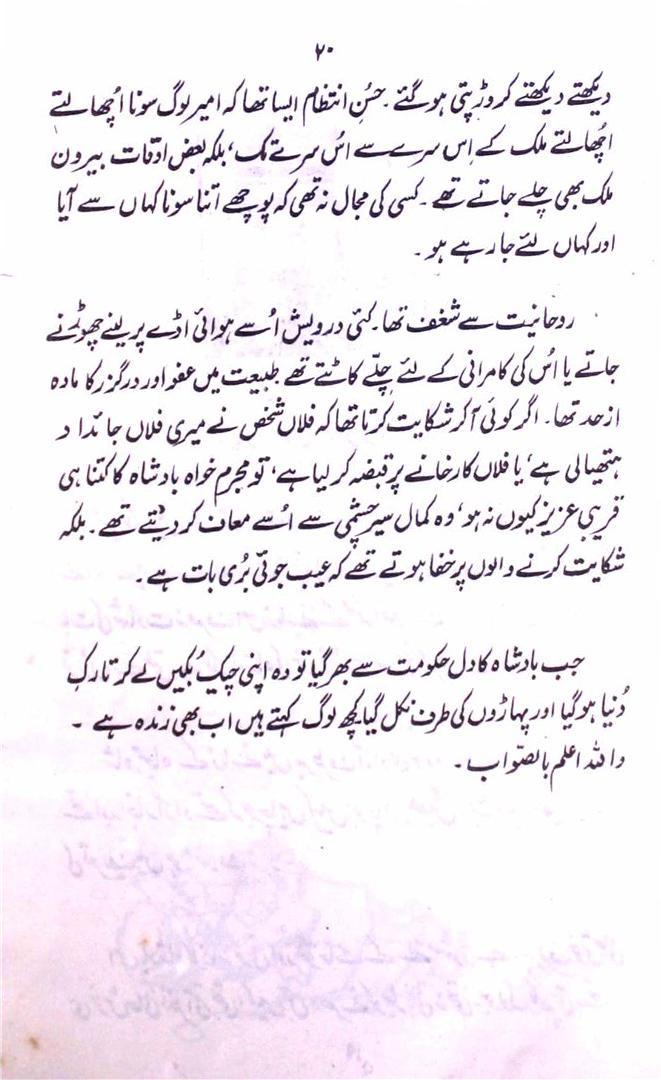 ۲۰
دیکھتے دیکھتے کروڑ پتی ہو گئے۔ حُسنِ انتظام ایسا تھا کہ امیر لوگ سونا اُچھالتے
اچھالتے ملک کے اِس سرے سے اُس سرے تک، بلکہ بعض اوقات بیرون
ملک بھی چلے جاتے تھے۔ کسی کی مجال نہ تھی کہ پوچھے اتنا سونا کہاں سے آیا
اور کہاں لئے جا رہے ہو۔
روحانیت سے شغف تھا۔ کئی درویش اُسے ہوائی اڈے پر لینے چھوڑنے
جاتے یا اُس کی کامرانی کے لئے چلّے کاٹتے تھے طبیعت میں عفو اور درگزر کا مادہ
از حد تھا۔ اگر کوئی آ کر شکایت کرتا تھا کہ فلاں شخص نے میری فلاں جائداد
ہتھیا لی ہے، یا فلاں کارخانے پر قبضہ کر لیا ہے، تو مجرم خواہ بادشاہ کا کتنا ہی
قریبی عزیز کیوں نہ ہو، وہ کمال سیر چشمی سے اُسے معاف کر دیتے تھے۔ بلکہ
شکایت کرنے والوں پر خفا ہوتے تھے کہ عیب جوئی بُری بات ہے۔
جب بادشاہ کا دل حکومت سے بھر گیا تو وہ اپنی چیک بُکیں لے کر تارکِ
دُنیا ہو گیا اور پہاڑوں کی طرف نکل گیا کچھ لوگ کہتے ہیں اب بھی زندہ ہے۔
واللہ اعلم بالصّواب۔